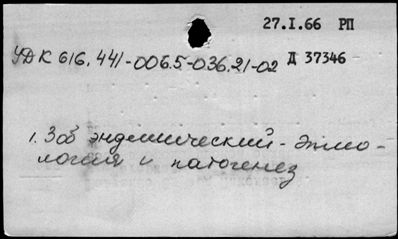 27.I.66 РП
УДК 616.441-006.5-036.21-02 Д 37346
1. Зоб эндемический - этио-
логия и патогенез